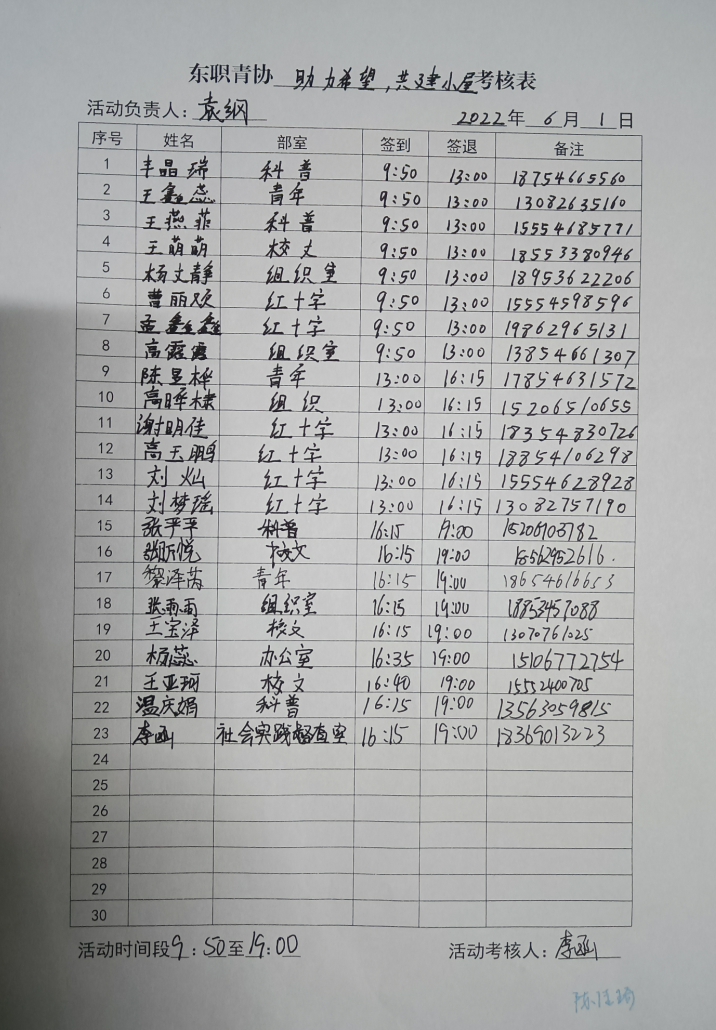 东职青协 助力希望,共建小屋考核表
活动负责人：袁纲 2022年 6 月 1 日
序号 姓名 部室 签到 签退 备注
1 丰晶瑞 科普 9:50 13:00 18754665560
2 王鑫蕊 青年 9:50 13:00 13082635160
3 王燕菲 科普 9:50 13:00 15554685771
4 王萌萌 校文 9:50 13:00 18553380946
5 杨文静 组织室 9:50 13:00 18953622206
6 曹丽欢 红十字 9:50 13:00 15554598596
7 孟鑫鑫 红十字 9:50 13:00 19862965131
8 高露露 组织室 9:50 13:00 13854661307
9 陈昱桦 青年 13:00 16:15 17854631572
10 高晔棣 组织 13:00 16:15 15206510655
11 谢明佳 红十字 13:00 16:15 18354830726
12 高玉鹏 红十字 13:00 16:15 18854106298
13 刘灿 红十字 13:00 16:15 15554628928
14 刘梦瑶 红十字 13:00 16:15 13082757190
15 张平平 科普 16:15 19:00
16 校文 16:15 19:00 18562952616.
17 黎泽芮 青年 16:15 19:00 18654616653
18 张雨雨 组织室 16:15 19:00 18853457088
19 王宝泽 校文 16:15 19:00 13070761025
20 杨蕊 办公室 16:35 19:00 15106772754
21 王亚珂 校文 16:40 19:00 15552400705
22 温庆娟 科普 16:15 19:00 13563059815
23 李函 社会实践督查室 16:15 19:00 18369013223
24
25
26
27
28
29
30
活动时间段9:50至19:00 活动考核人：李函